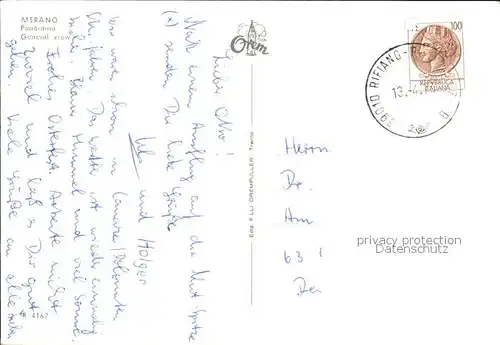 MERANO
Panorama
General view
Lieber Otto!
Nach einem Ausflug auf die Mut-Spitze
(x) senden Dir liebe Grüße
Uli und Holger
Wir waren schon in Canazei/Dolomiten
Ski fahren. Das Wetter ist wieder
Blauer Himmel und viel Sonne.
Frohes Osterfest. Arbeite nicht
zuviel und laß es Dir gut
gehen. Viele Grüße an alle
4167
Orem
Ediz. F.LLI OREMPULLER, Trento
100
REPUBBLICA
ITALIANA
39010 RIFIANO
13.-4.
B
Herrn
Dr.
Am
63
privacy protection
Datenschutz